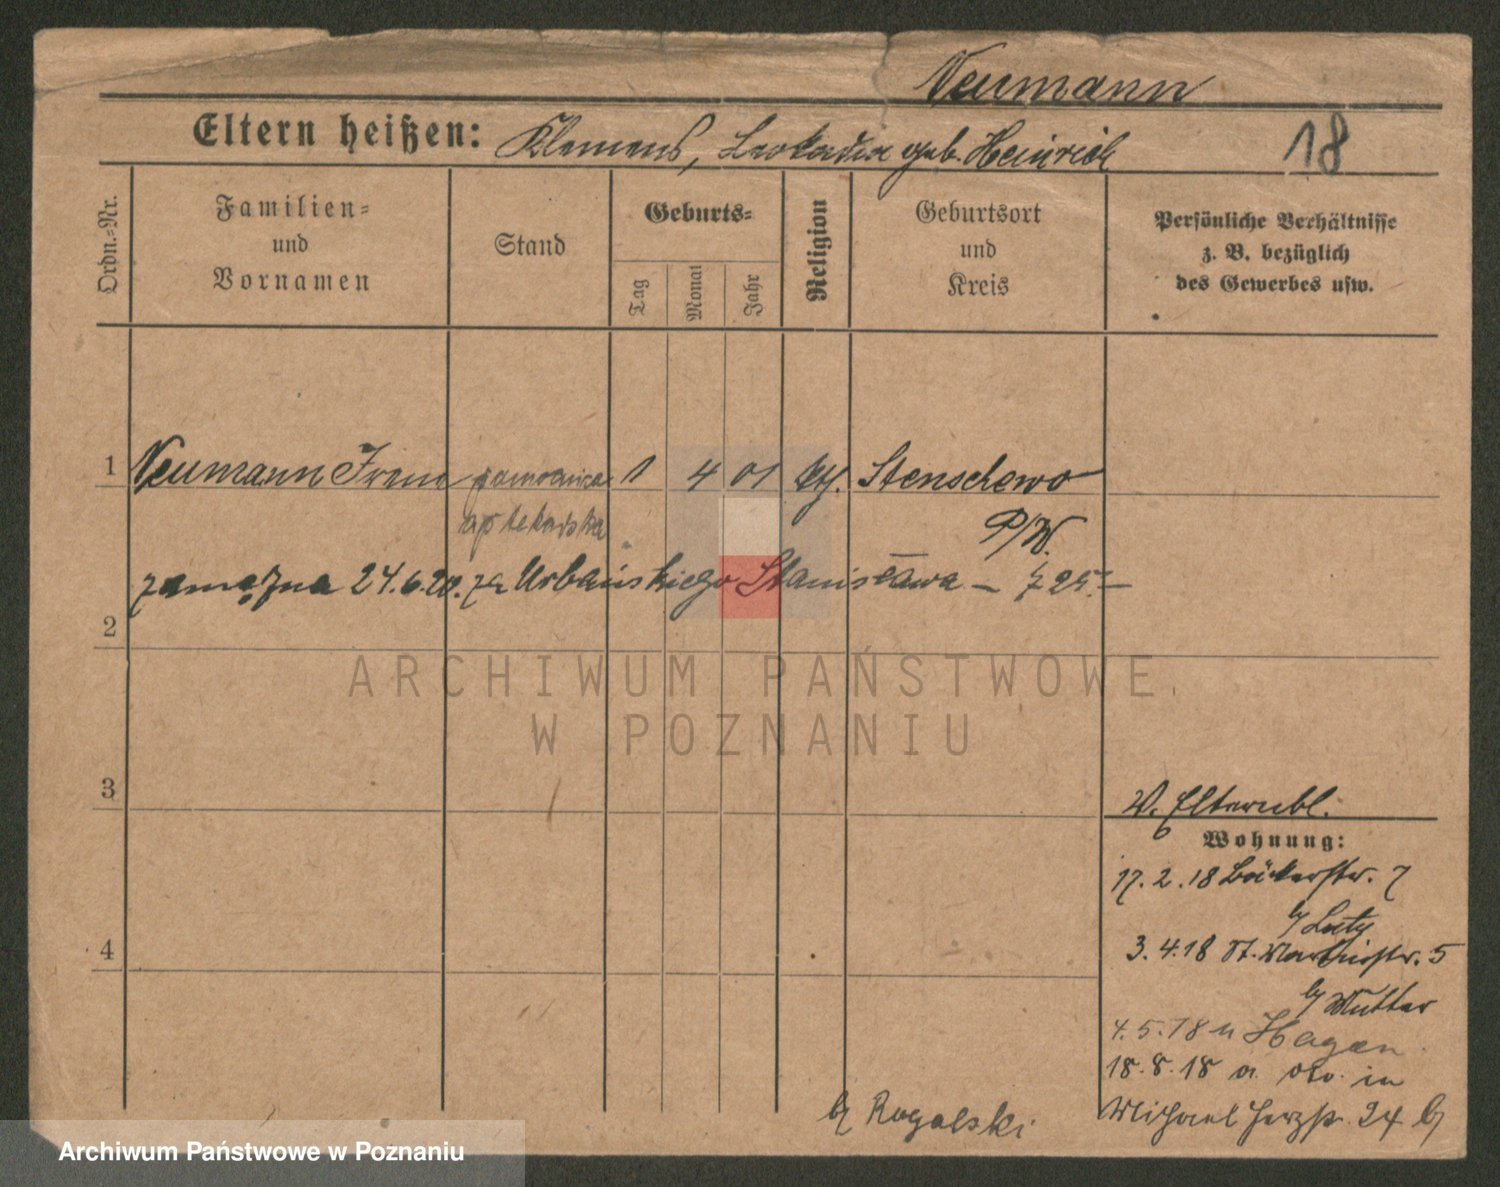 Neumann
Eltern heißen: Klemens, Leokadia geb. Heinrich
18
Ordn.-Nr.
Familien-
und
Vornamen
Stand
Geburts-
Tag
Monat
Jahr
Religion
Geburtsort
und
Kreis
Persönliche Verhältnisse
z. B. bezüglich
des Gewerbes usw.
1 Neumann Irene pomocnica 1 4 01 kth. Stenschewo
aptekarska P/W.
zamężna 24.6.20. za Urbańskiego Stanisława – 725.–
2
3
4
W. Elternbl.
Wohnung:
17.2.18 Bäckerstr. 7
b/ Luty
3.4.18 St. Martinstr. 5
b/ Mutter
4.5.18 n Hagen
18.8.18 a. in
Michael Herzstr. 24 b/
b/ Rogalski
ARCHIWUM PAŃSTWOWE
W POZNANIU
Archiwum Państwowe w Poznaniu